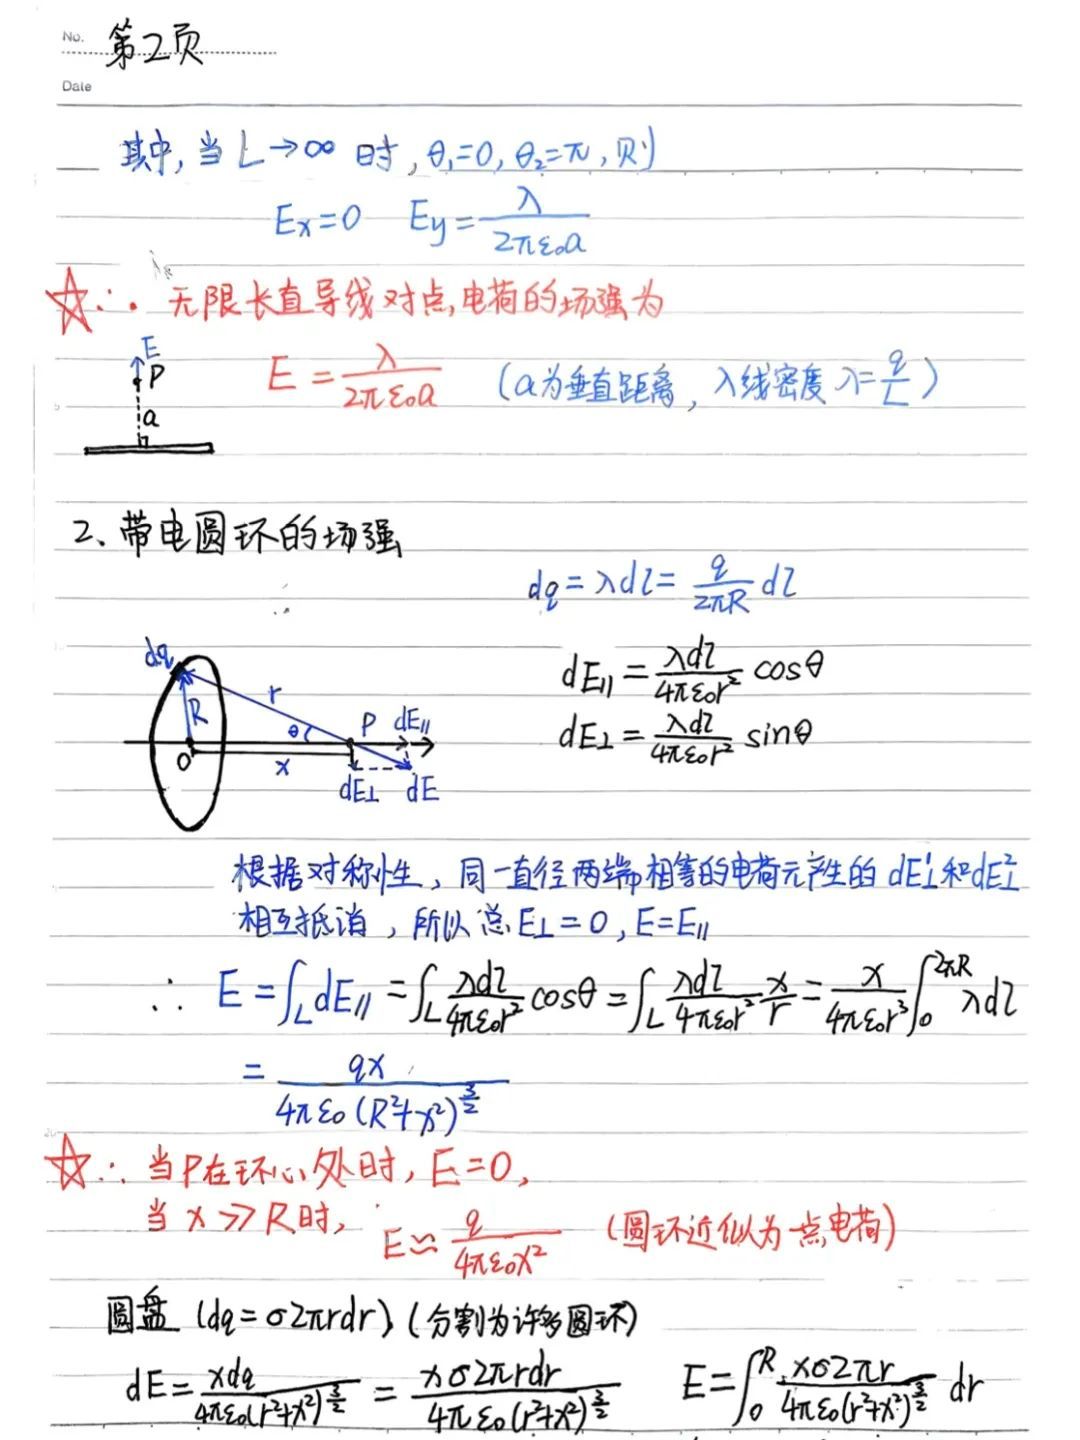 No. 第2页
Date
其中,当 L→∞ 时,θ₁=0,θ₂=π,则
Ex=0 Ey=λ/(2πε₀a)
☆∴. 无限长直导线对点电荷的场强为
E=λ/(2πε₀a) (a为垂直距离,λ线密度 λ=q/L)
E
P
a
2、带电圆环的场强
dq=λdl=q/(2πR) dl
dE∥=λdl/(4πε₀r²) cosθ
dE⊥=λdl/(4πε₀r²) sinθ
dq
r
R
θ
P dE∥
O
x
dE⊥ dE
根据对称性,同一直径两端相等的电荷元产生的 dE⊥¹和dE⊥²
相互抵消,所以总E⊥=0,E=E∥
∴ E=∫_L dE∥=∫_L λdl/(4πε₀r²) cosθ=∫_L λdl/(4πε₀r²) x/r=x/(4πε₀r³)∫₀^(2πR) λdl
=qx/(4πε₀(R²+x²)^(3/2))
☆∴. 当P在环心处时,E=0,
当 x≫R时, E≈q/(4πε₀x²) (圆环近似为一点电荷)
圆盘 (dq=σ2πrdr)(分割为许多圆环)
dE=xdq/(4πε₀(r²+x²)^(3/2)) = xσ2πrdr/(4πε₀(r²+x²)^(3/2)) E=∫₀^R xσ2πr/(4πε₀(r²+x²)^(3/2)) dr